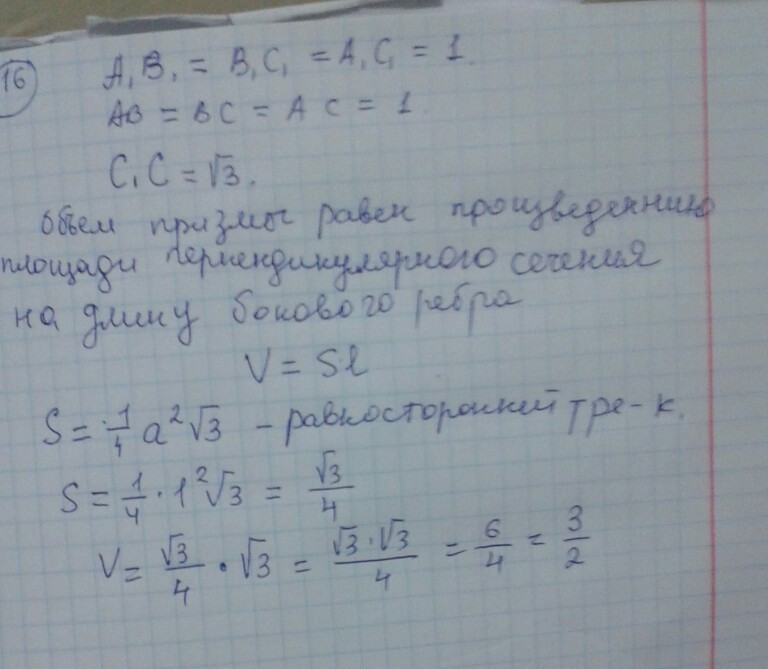 16
A₁B₁ = B₁C₁ = A₁C₁ = 1.
AB = BC = AC = 1.
C₁C = √3.
Объем призмы равен произведению
площади перпендикулярного сечения
на длину бокового ребра
V = Sl
S = 1/4 a²√3 – равносторонний тре-к.
S = 1/4 · 1²√3 = √3/4
V = √3/4 · √3 = √3·√3/4 = 6/4 = 3/2